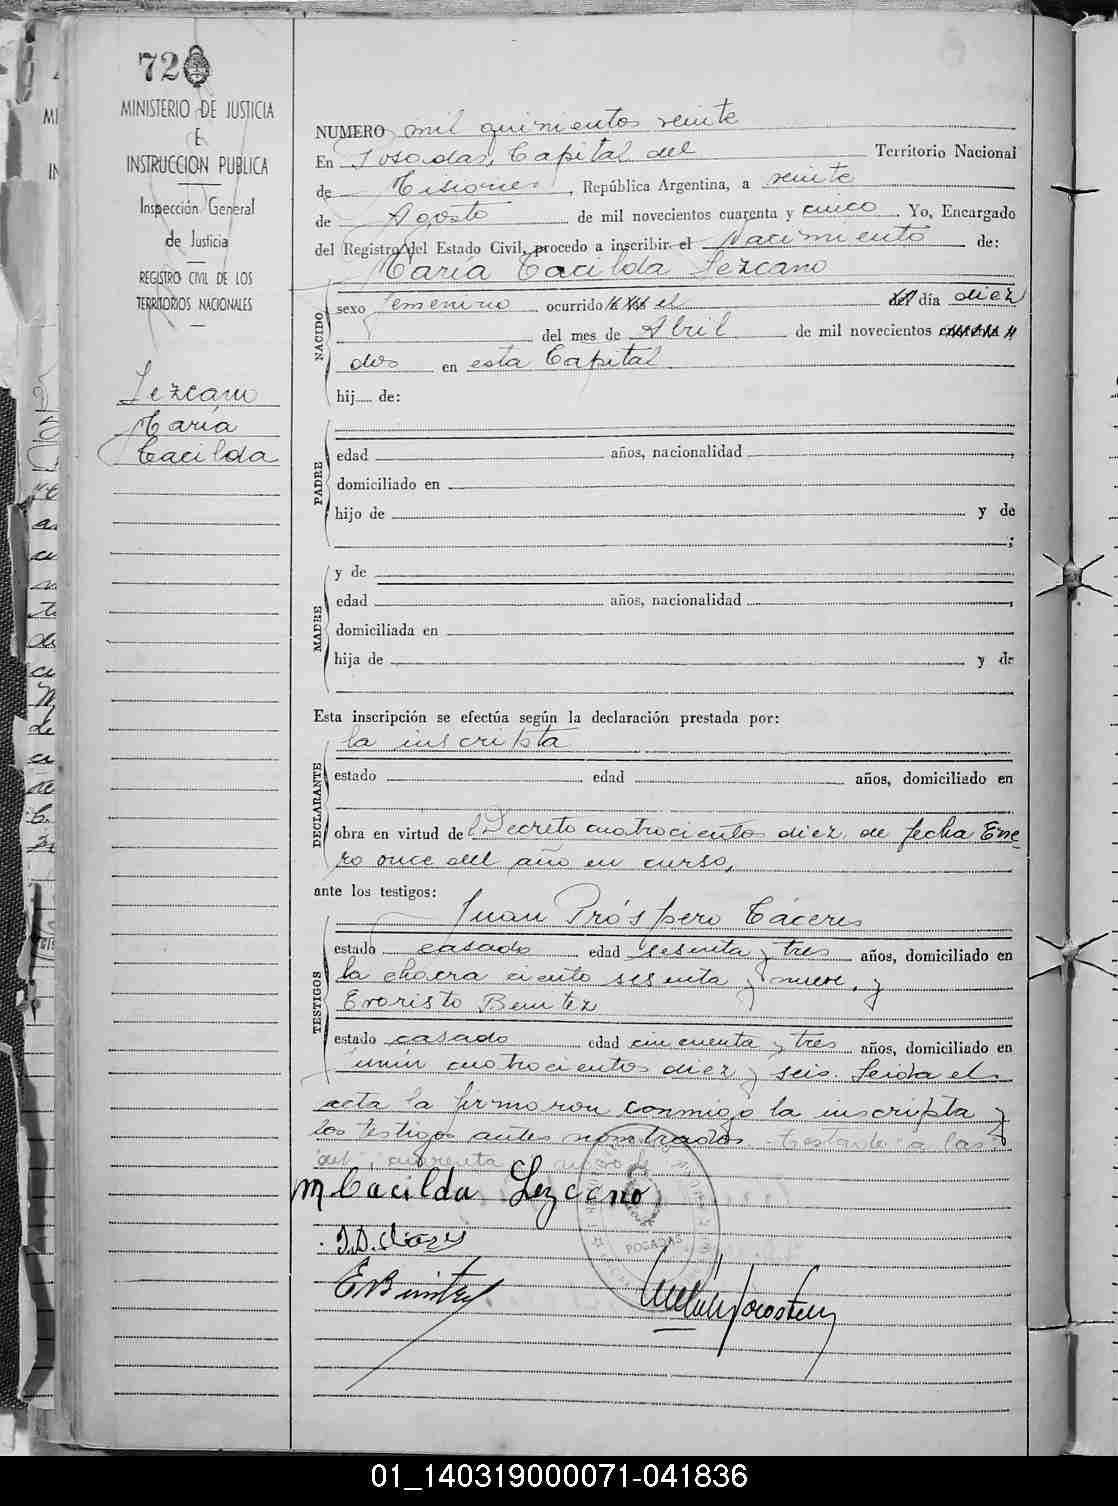 72
MINISTERIO DE JUSTICIA
E
INSTRUCCION PUBLICA
Inspección General
de Justicia
REGISTRO CIVIL DE LOS
TERRITORIOS NACIONALES
Lezcano
María
Cacilda
NUMERO mil quinientos veinte
En Posadas, Capital del Territorio Nacional
de Misiones, República Argentina, a veinte
de Agosto de mil novecientos cuarenta y cinco. Yo, Encargado
del Registro del Estado Civil, procedo a inscribir el Nacimiento de:
María Cacilda Lezcano
NACIDO
sexo femenino ocurrido el día diez
del mes de Abril de mil novecientos
dos en esta Capital
hij de:
PADRE
edad años, nacionalidad ,
domiciliado en
hijo de y de
;
MADRE
y de
edad años, nacionalidad ,
domiciliada en
hija de y de
Esta inscripción se efectúa según la declaración prestada por:
DECLARANTE
la inscripta
estado edad años, domiciliado en
obra en virtud del Decreto cuatrocientos diez de fecha Ene
ro once del año en curso,
ante los testigos:
TESTIGOS
Juan Próspero Cáceres
estado casado edad sesenta y tres años, domiciliado en
la chacra ciento sesenta y nueve, y
Evaristo Benitez
estado casado edad cincuenta y tres años, domiciliado en
Junín cuatrocientos diez y seis. Leída el
acta la firmaron conmigo la inscripta y
los testigos antes nombrados. Testado: a las
del, cuarenta
M Cacilda Lezcano
E Benitez
POSADAS
01_140319000071-041836